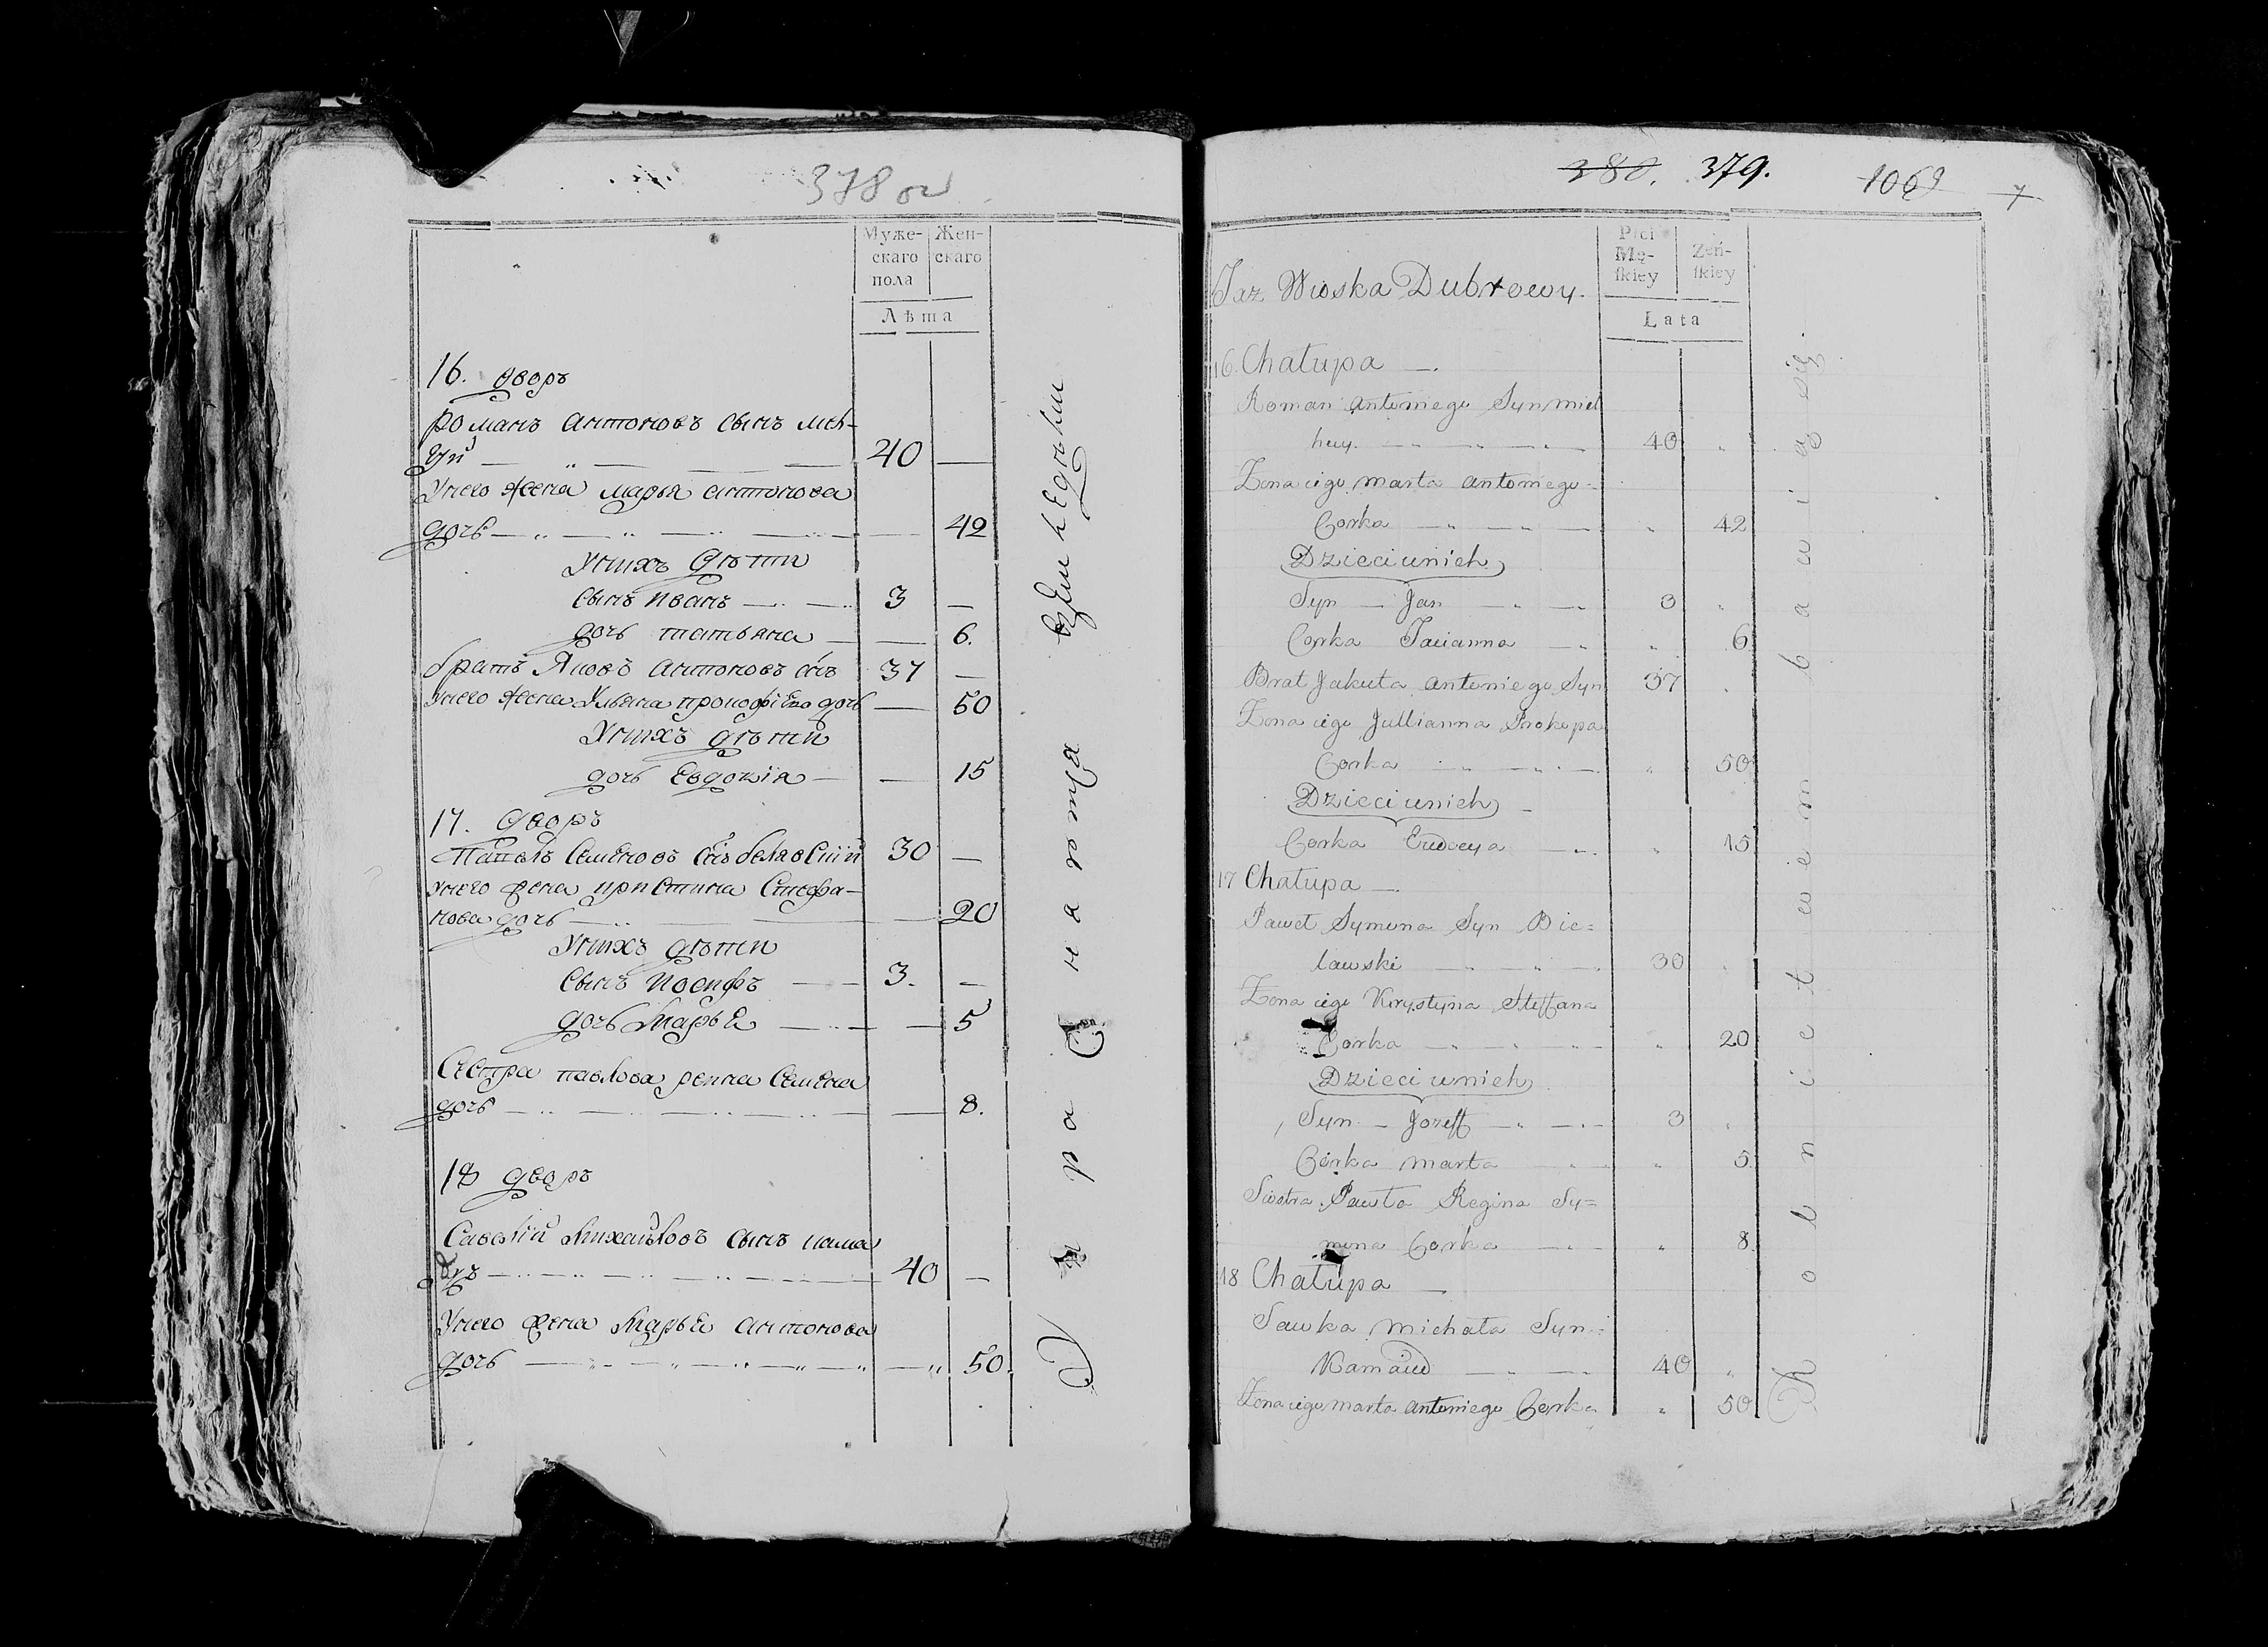 378 об
Муже-
скаго
пола
Жен-
скаго
Лѣта
16. дворъ
романъ антоновъ сынъ мел-
40 —
Унего жена марья антонова
дочь — — — 42
Унихъ дѣти
сынъ иванъ — 3 —
дочь татьяна — — 6.
братъ Яковъ антоновъ снъ 37 —
Унего жена Ульяна прокофіева дочь — 50
Унихъ дѣти
дочь Евдокія — — 15
17. дворъ
Павелъ Семеновъ снъ белявскій 30 —
унего жена кристина Стефа-
нова дочь — — 20
Унихъ дѣти
сынъ иосифъ — 3. —
дочь Марья — — 5
Сестра павлова регина Семена
дочь — — 8.
18 дворъ
Савелій Михайловъ сынъ кама
40 —
Унего жена Марья антонова
дочь — — 50.
380. 379. 1069
Płci
Mę-
ſkiey
Żeń-
ſkiey
Lata
Taż Wioska Dubrowy.
16. Chałupa —.
Roman Antoniego Syn Miel
40 "
Żona iego Marta Antoniego
Corka — " 42
Dzieci unich
Syn — Jan — 3 "
Corka Tacianna — " 6
Brat Jakuta Antoniego Syn 37 "
Żona iego Jullianna Prokopa
Corka — " 50
Dzieci unich —
Corka Eudocya — " 15
17 Chałupa —.
Paweł Symona Syn Bie=
lawski — 30 "
Żona iego Krystyna Steffana
Corka — " 20
Dzieci unich
Syn — Jozeff — 3 "
Córka Marta — " 5
Siostra Pawła Regina Sy=
mona Corka — " 8
18 Chałupa —
Sawka Michała Syn
40 "
Żona iego Marta Antoniego Corka " 50
Rolnictwem bawią się.